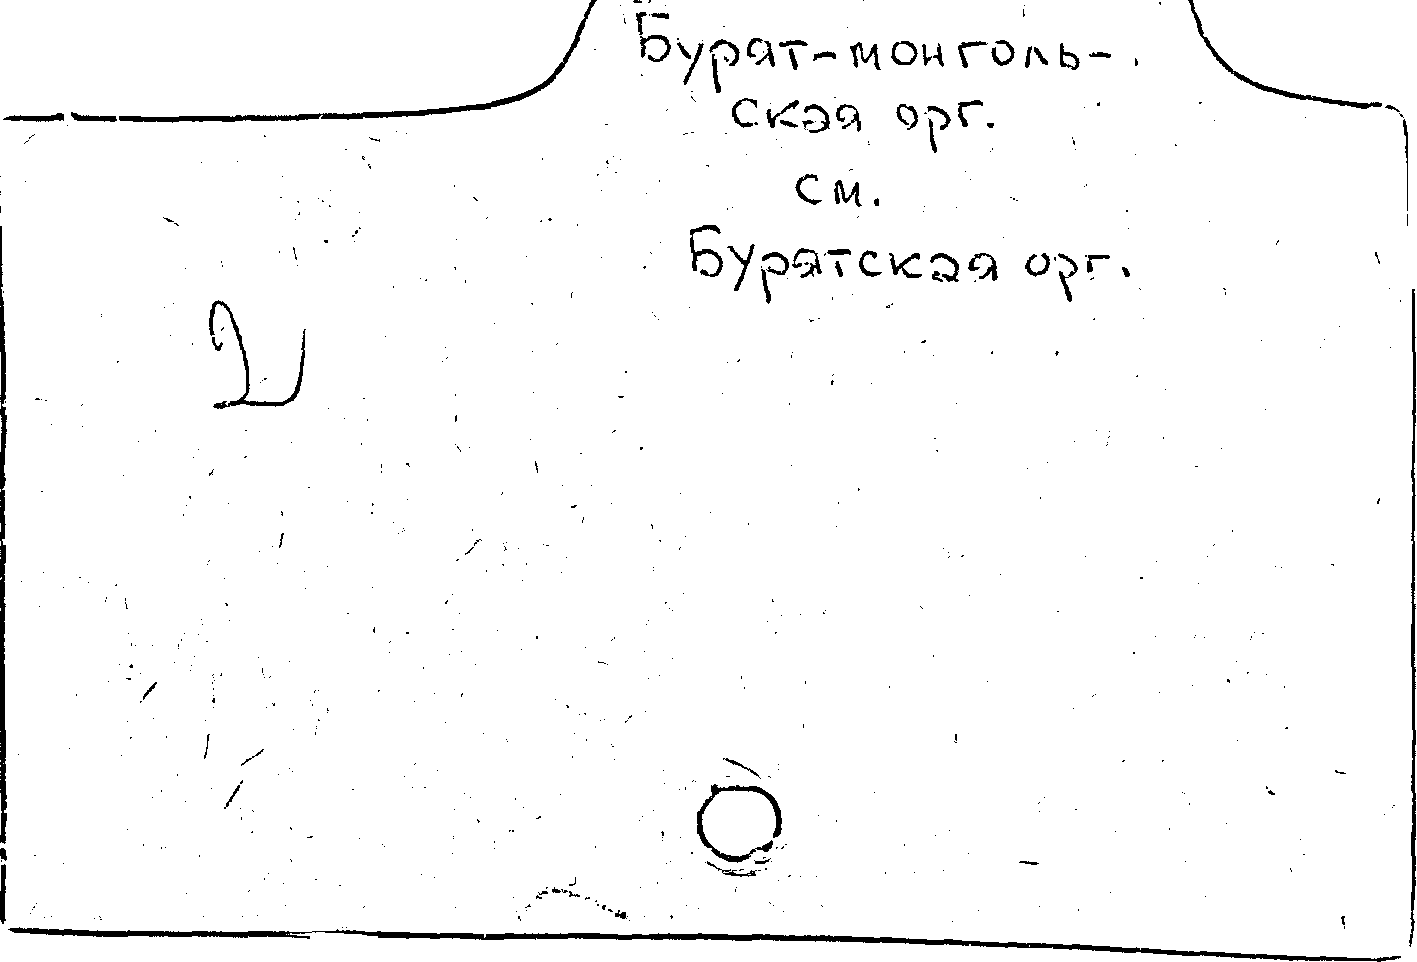 Бурят-монголь-
ская орг.
см.
Бурятская орг.